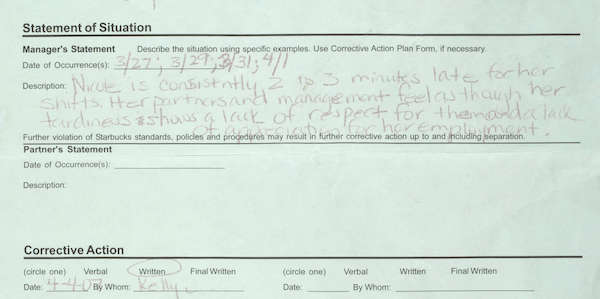 Statement of Situation
Manager's Statement Describe the situation using specific examples. Use Corrective Action Plan Form, if necessary.
Date of Occurrence(s): 3/27; 3/29; 3/31; 4/1
Description: Nicole is consistntly 2 to 3 minutes late for her
shifts. Her partners and management feel as though her
tardiness shows a lack of respect for them and a lack
of appreciation for her employment.
Further violation of Starbucks standards, policies and procedures may result in further corrective action up to and including separation.
Partner's Statement
Date of Occurrence(s):
Description:
Corrective Action
(circle one) Verbal Written Final Written (circle one) Verbal Written Final Written
Date: 4-4-07 By Whom: Kelly Date: By Whom: